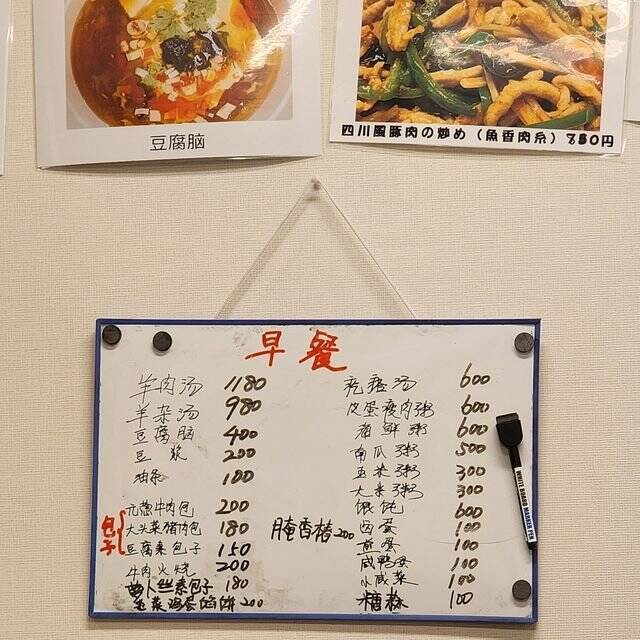 豆腐脑
四川風豚肉の炒め（魚香肉糸）780円
早餐
羊肉汤 1180
羊杂汤 980
豆腐脑 400
豆浆 200
油条 100
包子
元葱牛肉包 200
大头菜猪肉包 180
豆腐素包子 150
牛肉火烧 200
萝卜丝素包子 180
韭菜鸡蛋馅饼 200
腌香椿 200
疙瘩汤 600
皮蛋瘦肉粥 600
海鲜粥 600
南瓜粥 500
玉米粥 300
大米粥 300
馄饨 600
卤蛋 100
煎蛋 100
咸鸭蛋 100
小咸菜 100
糖蒜 100
WHITE BOARD MARKER